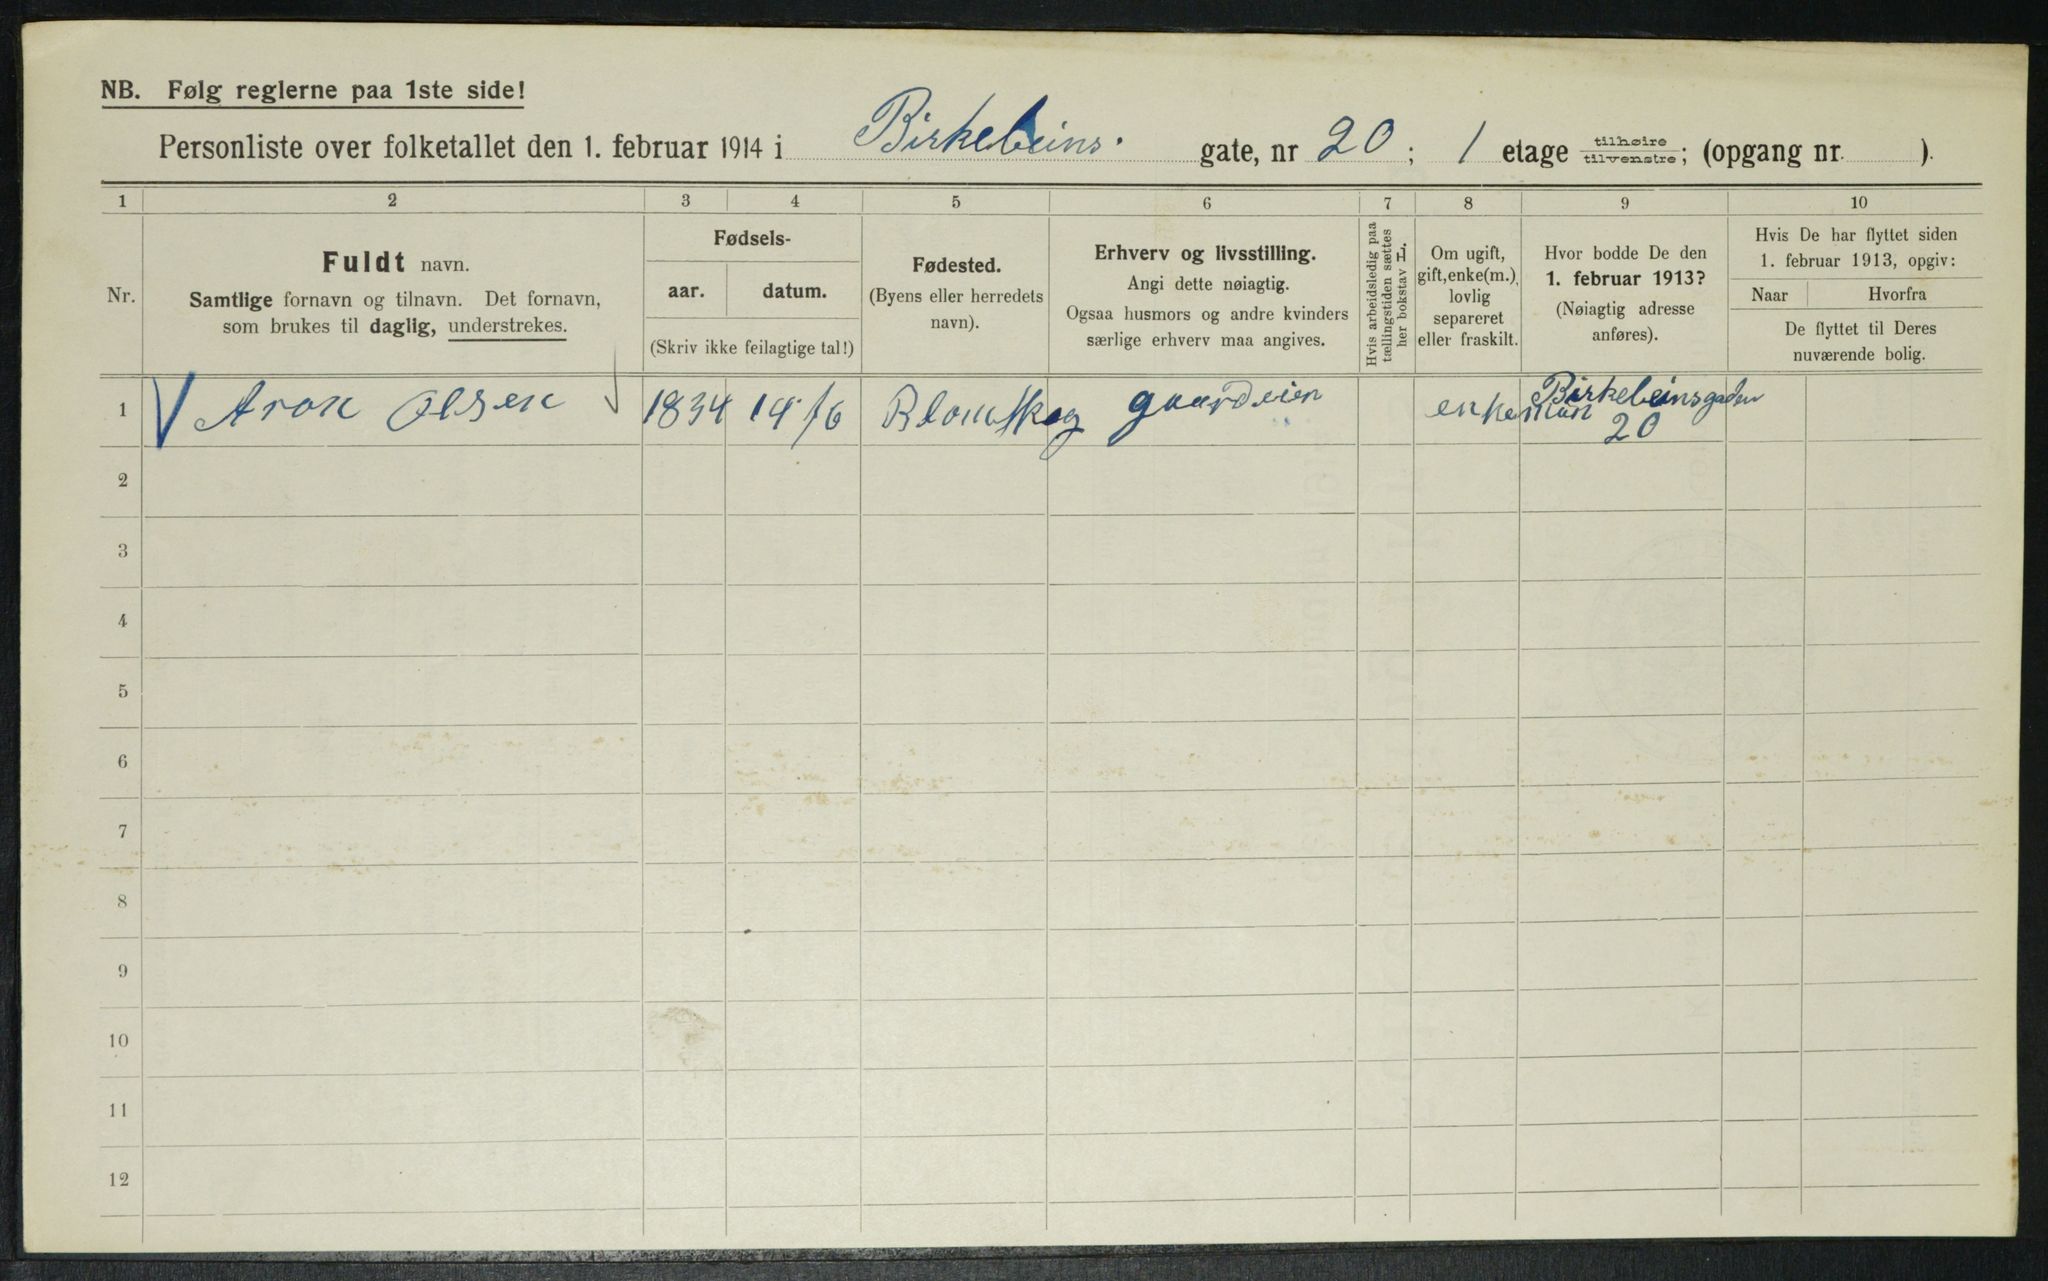 NB. Følg reglerne paa 1ste side!
Personliste over folketallet den 1. februar 1914 i Birkebeins. gate, nr 20; 1 etage tilhøire/tilvenstre; (opgang nr. ).
1 2 3 4 5 6 7 8 9 10
Nr.
Fuldt navn.
Samtlige fornavn og tilnavn. Det fornavn,
som brukes til daglig, understrekes.
Fødsels-
aar. datum.
(Skriv ikke feilagtige tal!)
Fødested.
(Byens eller herredets
navn).
Erhverv og livsstilling.
Angi dette nøiagtig.
Ogsaa husmors og andre kvinders
særlige erhverv maa angives.
Hvis arbeidsledig paa
tællingstiden sættes
her bokstav L.
Om ugift,
gift, enke(m.),
lovlig
separeret
eller fraskilt.
Hvor bodde De den
1. februar 1913?
(Nøiagtig adresse
anføres).
Hvis De har flyttet siden
1. februar 1913, opgiv:
Naar Hvorfra
De flyttet til Deres
nuværende bolig.
1 Aron Olsen 1834 14/6 Blomskog gaardeier enkeman Birkebeinsgaden
20
2
3
4
5
6
7
8
9
10
11
12